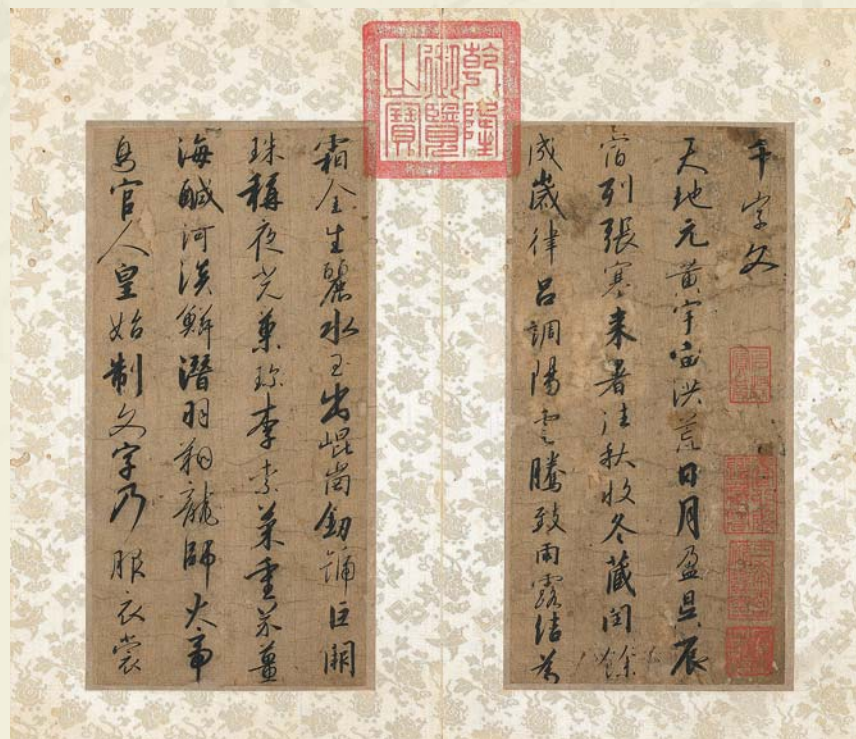 千字文
天地元黃宇宙洪荒日月盈昃辰
宿列張寒来暑往秋收冬藏閏餘
成歲律呂調陽雲騰致雨露結為
霜金生麗水玉出崐崗釼號巨闕
珠稱夜光菓珍李柰菜重芥薑
海鹹河淡鱗潛羽翔龍師火帝
鳥官人皇始制文字乃服衣裳
乾隆御覽之寶